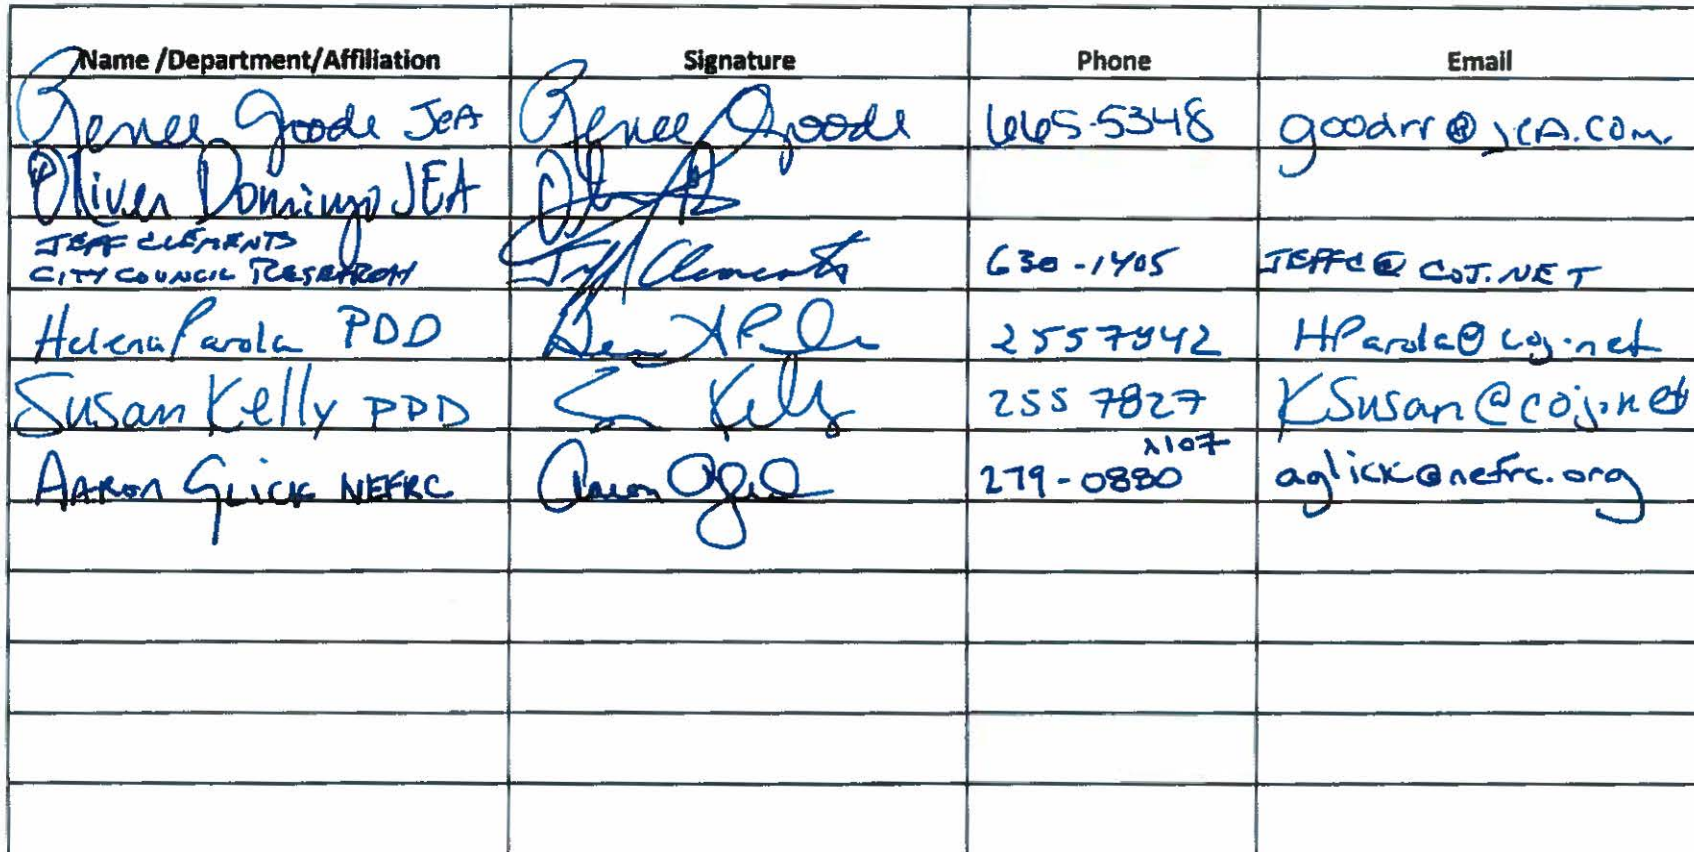 Name /Department/Affiliation Signature Phone Email
Renee Goode JEA Renee Goode 665-5348 goodrr@jea.com.
Oliver Domingo JEA
JEFF CLEMENTS
CITY COUNCIL RESEARCH Jeff Clements 630-1405 JEFFC@COJ.NET
Helena Parola PDD 2557842 HParola@coj.net
Susan Kelly PDD Kelly 255 7827 KSusan@coj.net
x107
AARON GLICK NEFRC Aaron Glick 279-0880 aglick@nefrc.org